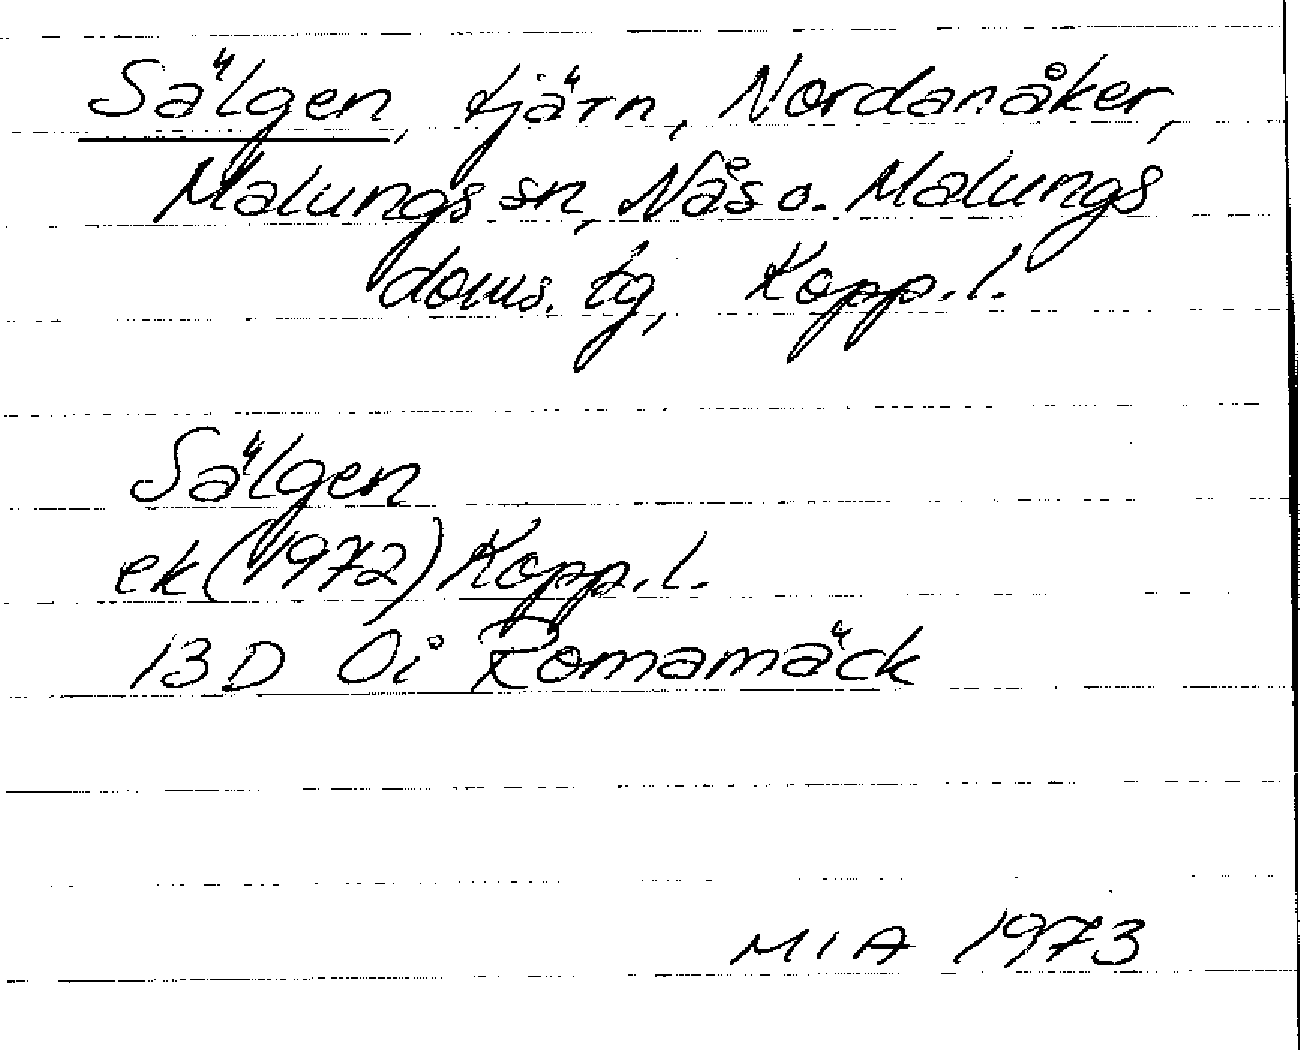 Sälgen, tjärn, Nordanåker,
Malungs sn, Nås o. Malungs
doms. tg, Kopp. l.
Sälgen
ek (1972) Kopp. l.
13 D 0i Romamäck
MIA 1973